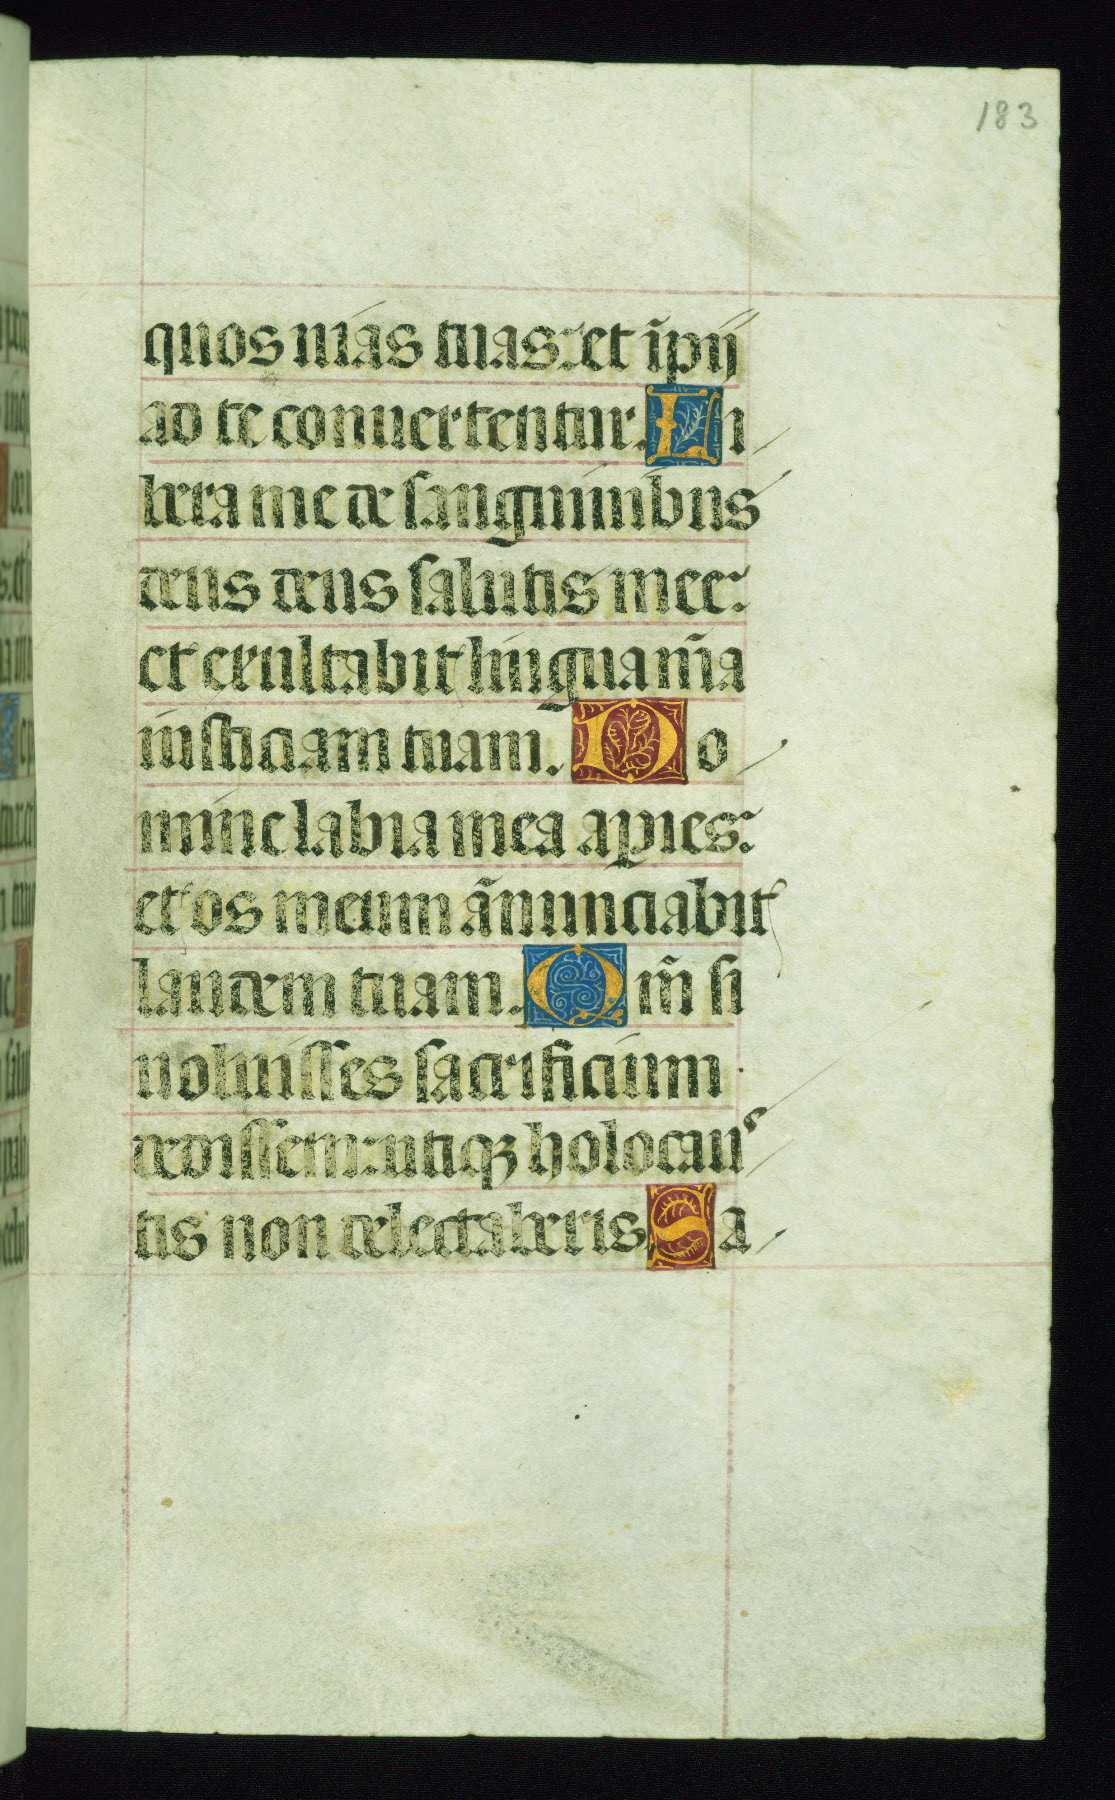 183
quos uias tuas: et īpij
ad te conuertentur. Li
bera me de sanguinibus
deus deus salutis mee:
et exultabit lingua m̄a
iusticiam tuam. Do
mine labia mea apies:
et os meum ānunciabit
laudem tuam. Qm̄ si
uoluisses sacrificium
dedissem: utiqꝫ holocaus
tis non delectaberis. Sa